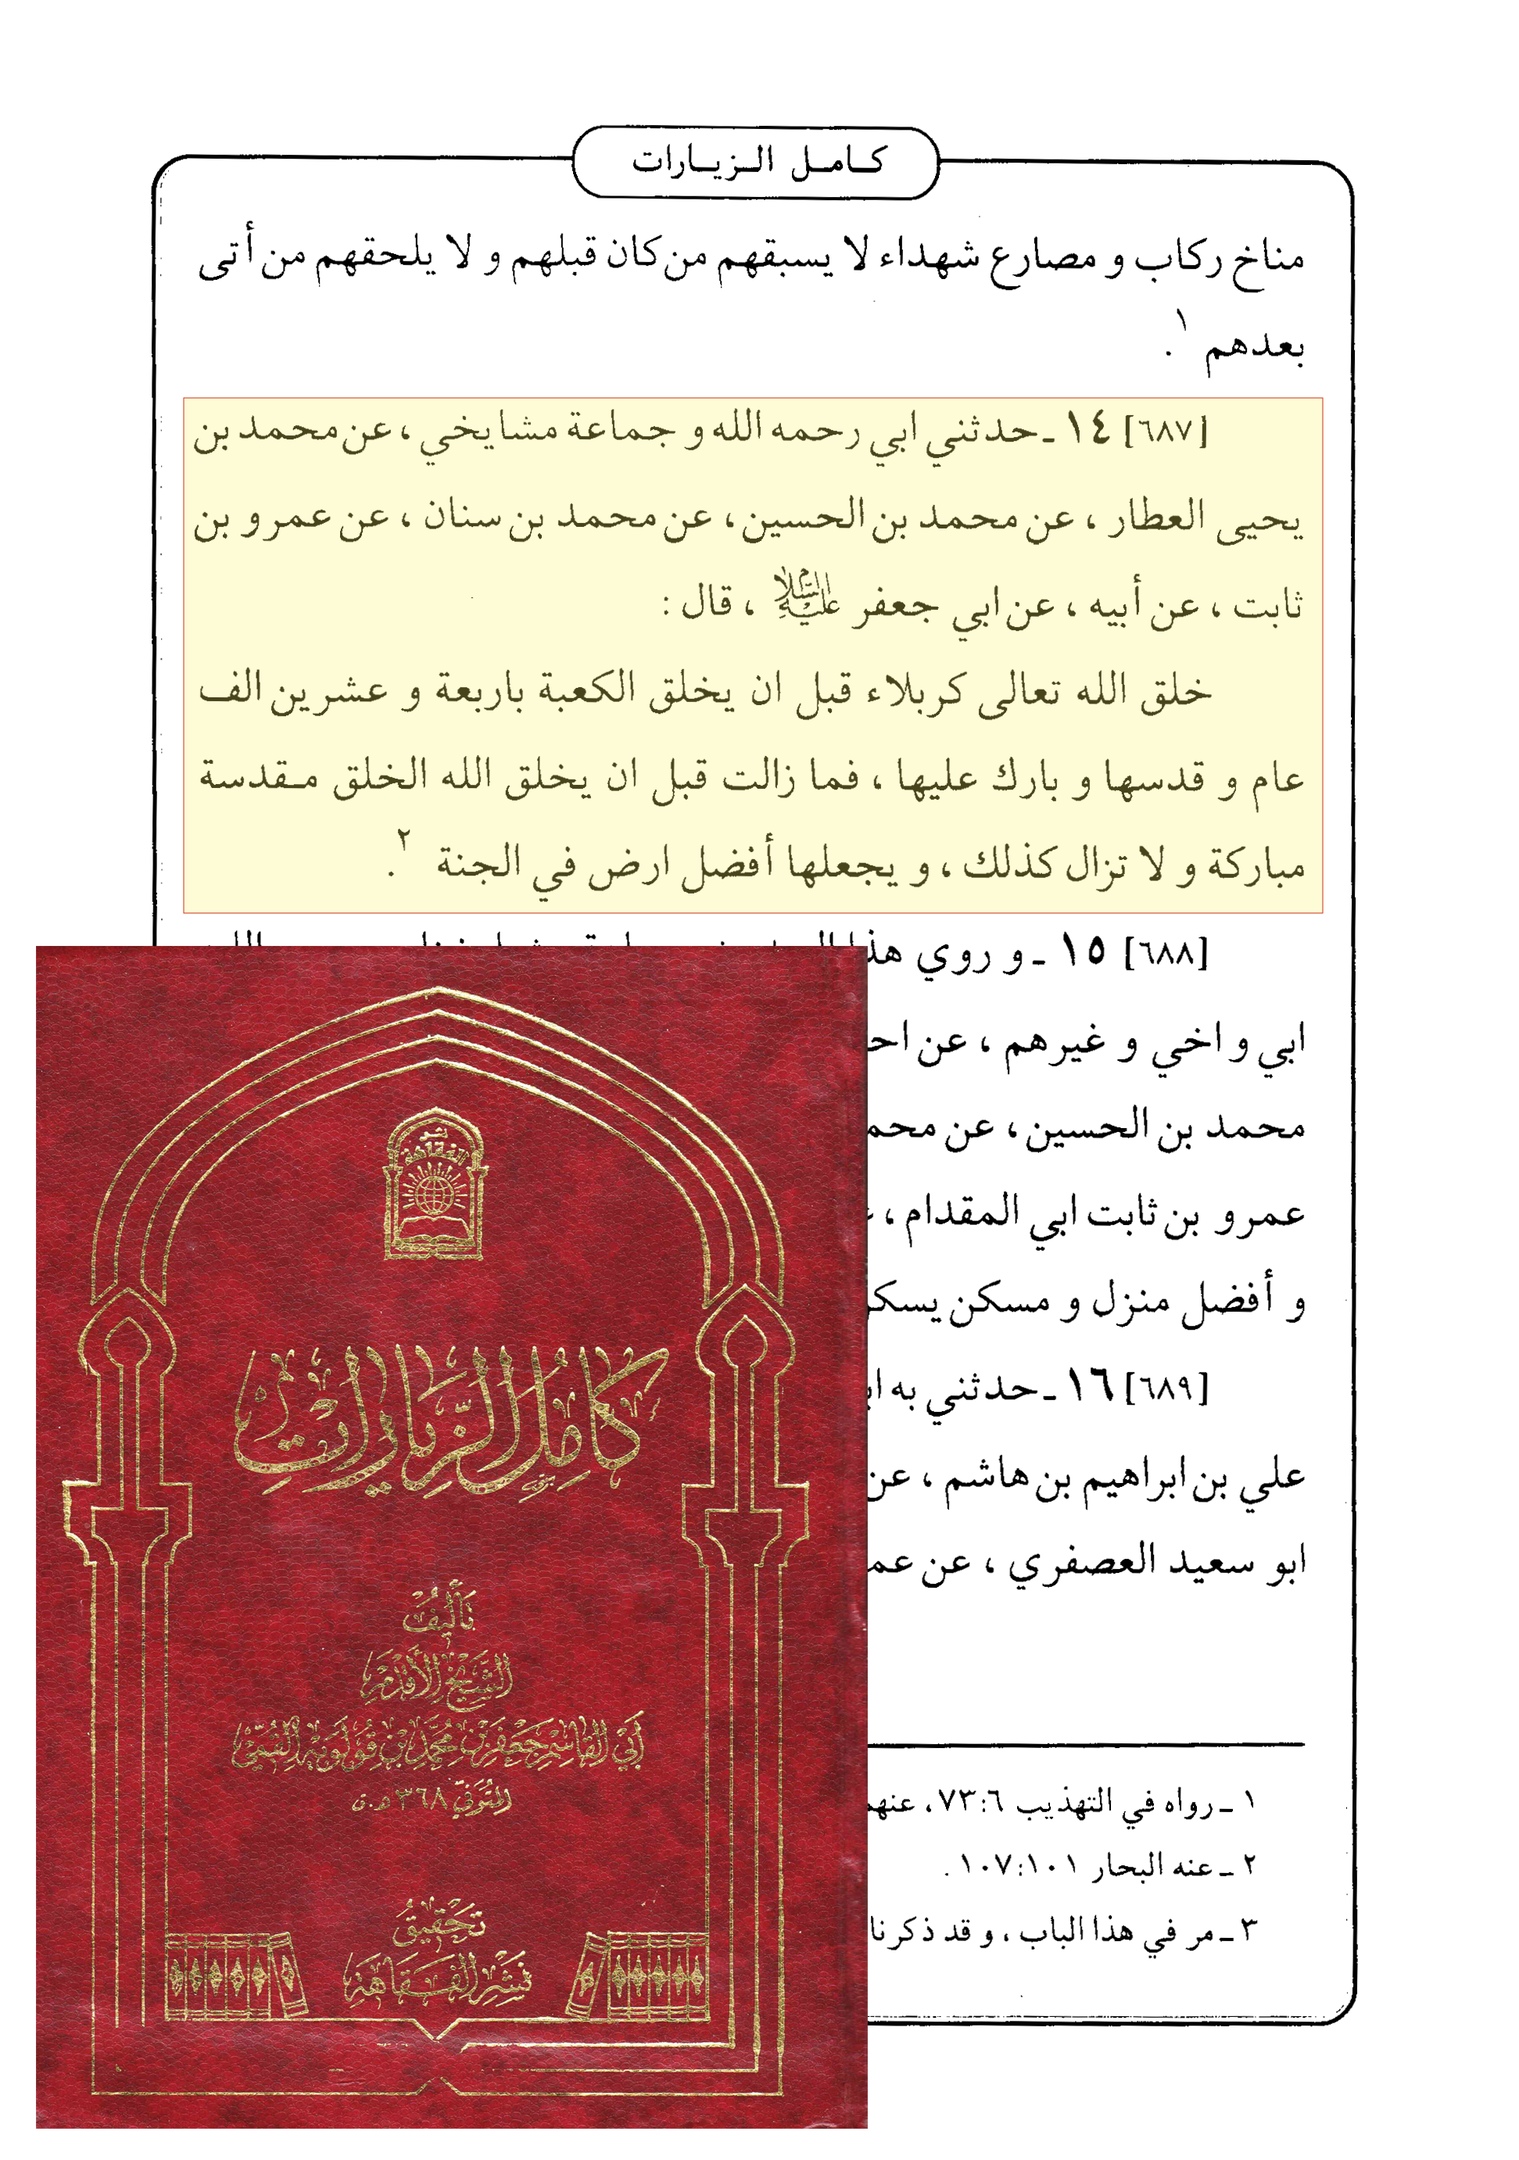 كامل الزيارات
مناخ ركاب و مصارع شهداء لا يسبقهم من كان قبلهم و لا يلحقهم من أتى
بعدهم ١.
[٦٨٧] ١٤ ـ حدثني ابي رحمه الله و جماعة مشايخي ، عن محمد بن
يحيى العطار ، عن محمد بن الحسين ، عن محمد بن سنان ، عن عمرو بن
ثابت ، عن أبيه ، عن ابي جعفر عليه السلام ، قال :
خلق الله تعالى كربلاء قبل ان يخلق الكعبة باربعة و عشرين الف
عام و قدسها و بارك عليها ، فما زالت قبل ان يخلق الله الخلق مقدسة
مباركة و لا تزال كذلك ، و يجعلها أفضل ارض في الجنة ٢.
[٦٨٨] ١٥ ـ و روي هذا
ابي و اخي و غيرهم ، عن
محمد بن الحسين ، عن
عمرو بن ثابت ابي المقدام ،
و أفضل منزل و مسكن
[٦٨٩] ١٦ ـ حدثني به
علي بن ابراهيم بن هاشم ، عن
ابو سعيد العصفري ، عن
١ ـ رواه في التهذيب ٦:٧٣ ،
٢ ـ عنه البحار ١٠١:١٠٧ .
٣ ـ مر في هذا الباب ، و قد ذكرنا
نشر
الفقاهة
كَامِلُ الزِّيَارَاتِ
تَأليفُ
الشَّيْخِ الأَقْدَمِ
أَبِي القَاسِمِ جَعْفَرِ بْنِ مُحَمَّدِ بْنِ قُولَوَيْهِ القُمِّيِّ
المُتَوَفّى ٣٦٨ هـ.ق
تَحْقِيقُ
نَشْرِ الفَقَاهَةِ